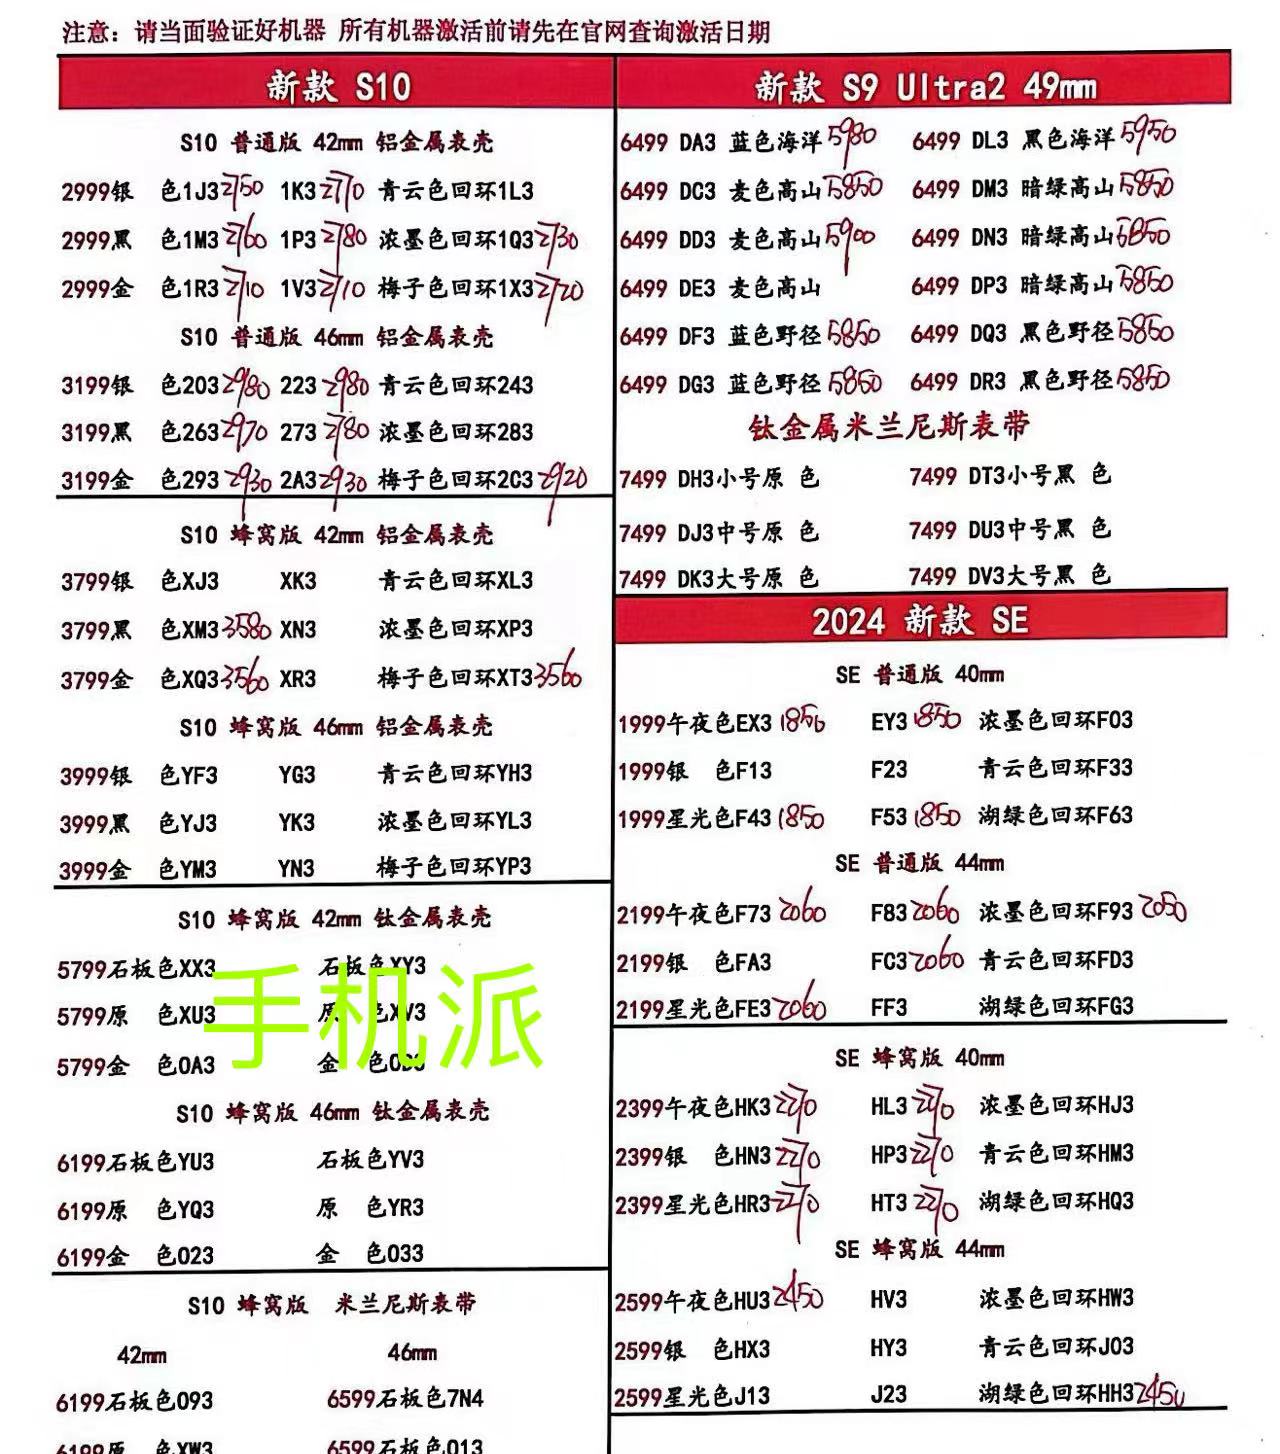 注意：请当面验证好机器 所有机器激活前请先在官网查询激活日期
新款 S10
S10 普通版 42mm 铝金属表壳
2999银 色1J3 2750 1K3 2770 青云色回环1L3
2999黑 色1M3 2760 1P3 2780 浓墨色回环1Q3 2730
2999金 色1R3 2710 1V3 2710 梅子色回环1X3 2720
S10 普通版 46mm 铝金属表壳
3199银 色203 2980 223 2980 青云色回环243
3199黑 色263 2970 273 2780 浓墨色回环283
3199金 色293 2930 2A3 2930 梅子色回环2C3 2920
S10 蜂窝版 42mm 铝金属表壳
3799银 色XJ3 XK3 青云色回环XL3
3799黑 色XM3 3580 XN3 浓墨色回环XP3
3799金 色XQ3 3560 XR3 梅子色回环XT3 3560
S10 蜂窝版 46mm 铝金属表壳
3999银 色YF3 YG3 青云色回环YH3
3999黑 色YJ3 YK3 浓墨色回环YL3
3999金 色YM3 YN3 梅子色回环YP3
S10 蜂窝版 42mm 钛金属表壳
5799石板色XX3 石板色XY3
5799原 色XU3 原 色XV3
5799金 色0A3 金 色
手机派
S10 蜂窝版 46mm 钛金属表壳
6199石板色YU3 石板色YV3
6199原 色YQ3 原 色YR3
6199金 色023 金 色033
S10 蜂窝版 米兰尼斯表带
42mm 46mm
6199石板色093 6599石板色7N4
6199原 色XW3 6599石板色013
新款 S9 Ultra2 49mm
6499 DA3 蓝色海洋 5980 6499 DL3 黑色海洋 5950
6499 DC3 麦色高山 5850 6499 DM3 暗绿高山 5850
6499 DD3 麦色高山 5900 6499 DN3 暗绿高山 5850
6499 DE3 麦色高山 6499 DP3 暗绿高山 5850
6499 DF3 蓝色野径 5850 6499 DQ3 黑色野径 5850
6499 DG3 蓝色野径 5850 6499 DR3 黑色野径 5850
钛金属米兰尼斯表带
7499 DH3小号原 色 7499 DT3小号黑 色
7499 DJ3中号原 色 7499 DU3中号黑 色
7499 DK3大号原 色 7499 DV3大号黑 色
2024 新款 SE
SE 普通版 40mm
1999午夜色EX3 1850 EY3 1850 浓墨色回环F03
1999银 色F13 F23 青云色回环F33
1999星光色F43 1850 F53 1850 湖绿色回环F63
SE 普通版 44mm
2199午夜色F73 2060 F83 2060 浓墨色回环F93 2050
2199银 色FA3 FC3 2060 青云色回环FD3
2199星光色FE3 2060 FF3 湖绿色回环FG3
SE 蜂窝版 40mm
2399午夜色HK3 2270 HL3 2270 浓墨色回环HJ3
2399银 色HN3 2270 HP3 2270 青云色回环HM3
2399星光色HR3 2270 HT3 2270 湖绿色回环HQ3
SE 蜂窝版 44mm
2599午夜色HU3 2450 HV3 浓墨色回环HW3
2599银 色HX3 HY3 青云色回环J03
2599星光色J13 J23 湖绿色回环HH3 2450